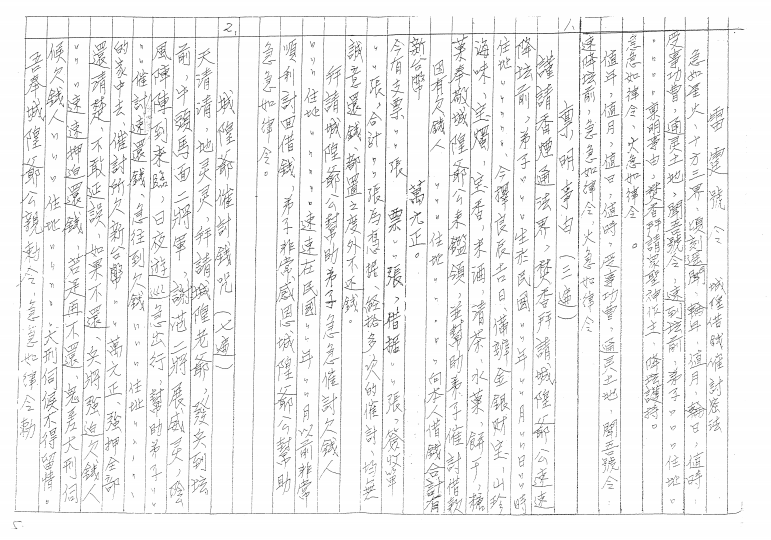 雷霆號令　城隍借錢催討法
急如星火，十方三界，頃刻遙聞，值年，值月，值日，值時
受事功曹，通靈土地，聞吾號令，速到坛前，弟子〃〃〃住地〃
〃〃〃〃，稟明事由，焚香拜請眾聖神位主，降坛護持。
急急如律令，火急如律令。
值年，值月，值日，值時，受事功曹，通灵土地，聞吾號令
速降坛前，急急如律令，火急如律令
1.　稟明事由（三遍）
謹請香煙通法界，焚香拜請城隍爺公速速
降坛前，弟子〃〃〃生於民國〃年〃月〃日〃時
住地〃〃〃〃〃，今擇良辰吉日，備辦金銀財宝，山珍
海味，宝燭，宝香，米酒，清茶，水菓，餅干，糖
菓奉敬城隍爺公來鑑領，並幫助弟子催討借款
因有欠錢人〃〃〃住地〃〃〃〃向本人借錢合計有
新台幣　萬元正。
今有支票〃張，票〃張，借据〃張，簽收單
〃〃張，合計〃張為憑據，經拾多次的催討，均無
誠意還錢都置之度外不还錢。
拜請城隍爺公幫助弟子急急催討欠錢人
〃〃〃住地〃〃〃〃〃速速在民國〃年〃〃月以前非常
順利討回借錢，弟子非常感恩城隍爺公幫助
急急如律令。
2.　城隍爺催討錢咒（七遍）
天清清，地灵灵，拜請城隍老爺，發矢到坛
前，牛頭馬面二將軍，謝范二將展威灵，陰
風陣陣到來臨，日夜遊巡急出行，幫助弟子〃〃
〃〃催討速還錢，急往到欠錢〃〃〃住址〃〃〃〃〃
的家中去，催討所欠新台幣〃〃萬元正，強押全部
還清楚，不敢延誤，如果不還，兵將強迫欠錢人
〃〃〃速速押迫還錢，若是再不還，鬼差大刑伺
候欠錢人〃〃〃住地〃〃〃〃，大刑伺候不得留情。
吾奉城隍爺公親封令，急急如律令勅
5